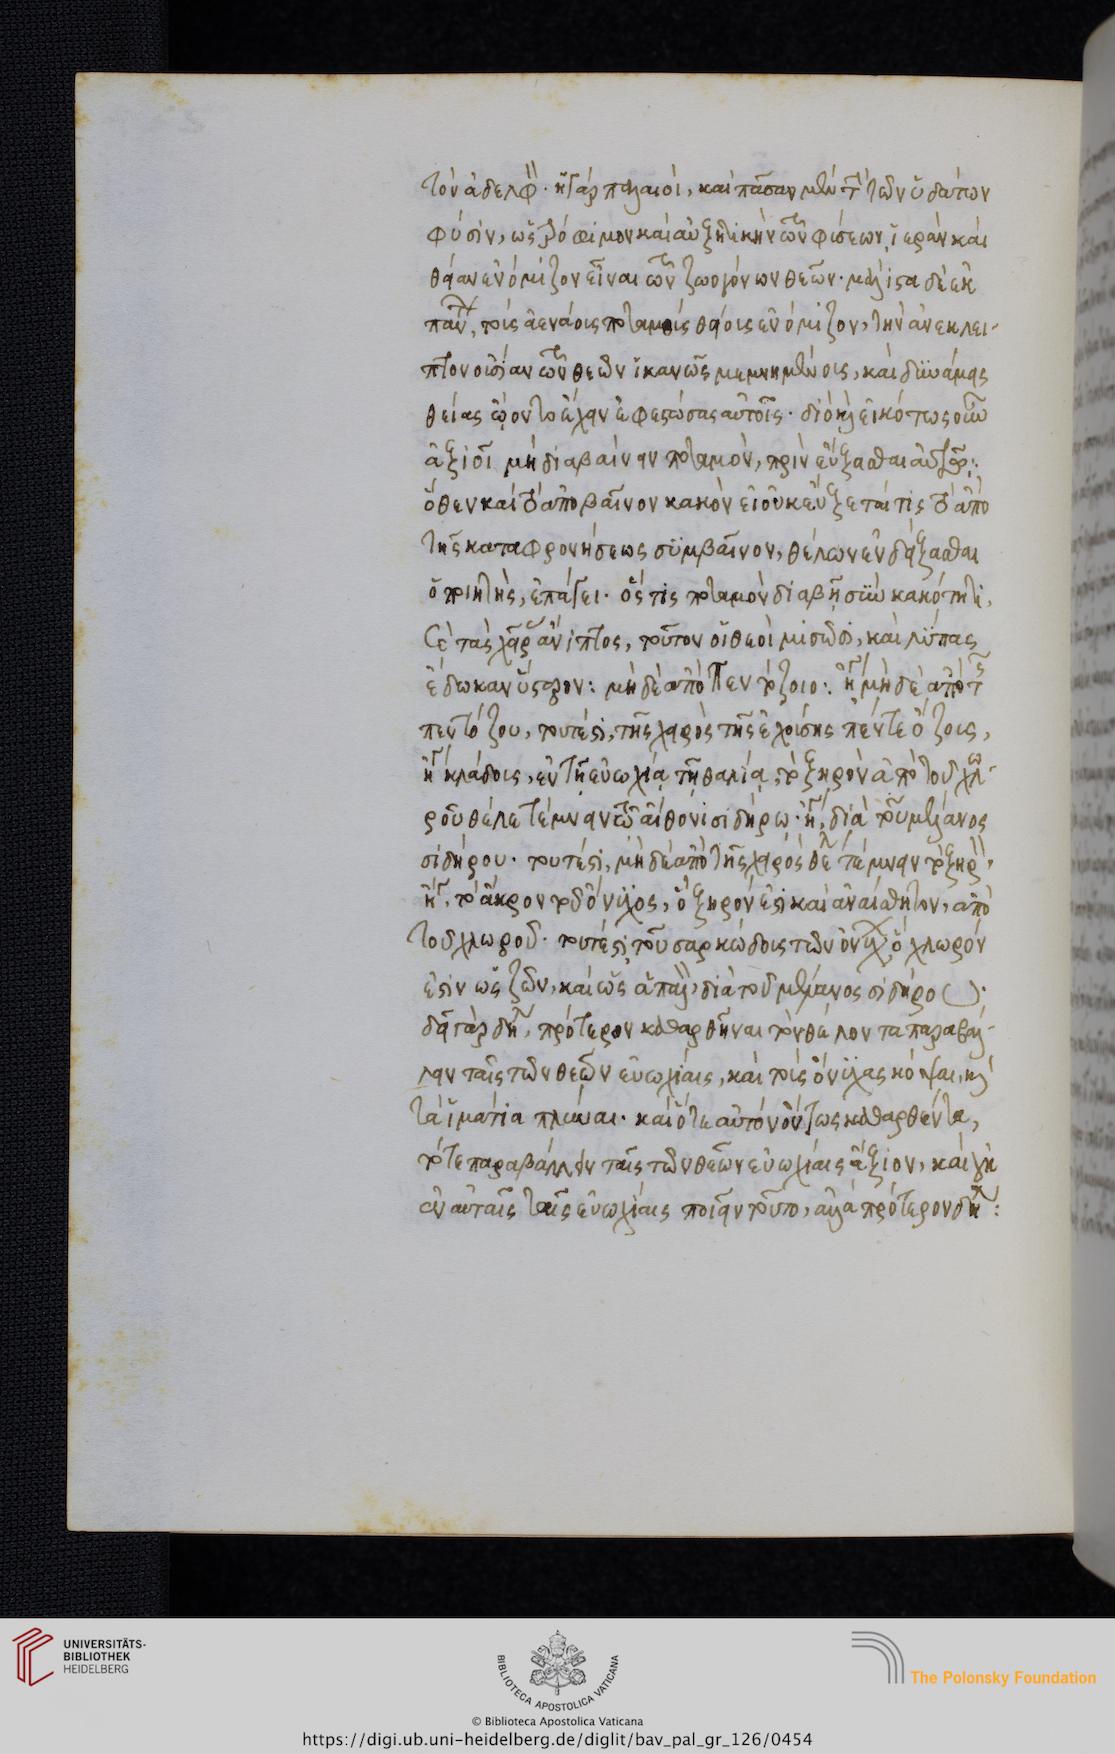 τὸν ἀδελφόν. οἱ γὰρ παλαιοὶ, καὶ πᾶσαν μὲν τὴν τῶν ὑδάτων
φύσιν, ὡς τρόφιμον καὶ αὐξητικὴν τῶν φύσεων, ἱερὰν καὶ
θείαν ἐνόμιζον εἶναι τῶν ζωογόνων θεῶν. μάλιστα δὲ ἐκ
πάντων, τοῖς ἀενάοις ποταμοῖς θείοις ἐνόμιζον, τὴν ἀνεκλει-
πτον οὐσίαν τῶν θεῶν ἱκανῶς μεμνημένοις, καὶ δυνάμεις
θείας ᾤοντο ἔχειν ἐφεστώσας αὐτοῖς. διὸ καὶ εἰκότως οὖν
ἀξιοῖ μὴ διαβαίνειν ποταμὸν, πρὶν εὔξασθαι αὐτῷ:
ὅθεν καὶ τὸ ἀποβαῖνον κακὸν εἰ οὐκ εὔξεταί τις τὸ ἀπὸ
τῆς καταφρονήσεως συμβαῖνον, θέλων ἐνδείξασθαι
ὁ ποιητὴς, ἐπάγει. ὅς τις ποταμὸν διαβῇ σὺν κακότητι,
δὲ τὰς χεῖρας ἄνιπτος, τοῦτον οἱ θεοὶ μισοῦσι, καὶ λύπας
ἔδωκαν ὕστερον: μὴ δὲ ἀπὸ πεντόζοιο: ἤγουν μὴ δὲ ἀπὸ τῆς
πεντόζου, τουτέστι, τῆς χειρὸς τῆς ἐχούσης πέντε ὄζοις,
ἤγουν κλάδοις, ἐν τῇ εὐωχίᾳ τῇ θαλίᾳ, τὸ ξηρὸν ἀπὸ τοῦ χλω-
ροῦ θέλε τέμνειν τῷ αἴθονι σιδήρῳ. ἤγουν, διὰ τοῦ μέλανος
σιδήρου. τουτέστι, μὴ δὲ ἀπὸ τῆς χειρὸς θέλε τέμνειν τὸ ξηρὸν,
ἤγουν, τὸ ἄκρον τοῦ ὄνυχος, ὃ ξηρόν ἐστι καὶ ἀναίσθητον, ἀπὸ
τοῦ χλωροῦ. τουτέστι, τοῦ σαρκώδοις τῶν ὀνύχων, ὃ χλωρόν
ἐστιν ὡς ζῶν, καὶ ὡς ἁπαλὸν, διὰ τοῦ μέλανος σιδήρου.
δεῖ γὰρ δηλονότι, πρότερον καθαρθῆναι τὸν θέλοντα παραβάλ-
λειν ταῖς τῶν θεῶν εὐωχίαις, καὶ τοῖς ὄνυχας κόψαι, καὶ
τὰ ἱμάτια πλῦναι. καὶ ὅτε αὐτὸν ὄντως καθαρθέντα,
τότε παραβάλλειν ταῖς τῶν θεῶν εὐωχίαις ἄξιον, καὶ οὐκ
ἐν αὐταῖς ταῖς εὐωχίαις ποιεῖν τοῦτο, ἀλλὰ πρότερον δηλονότι:
UNIVERSITÄTS-
BIBLIOTHEK
HEIDELBERG
BIBLIOTECA APOSTOLICA VATICANA
The Polonsky Foundation
© Biblioteca Apostolica Vaticana
https://digi.ub.uni-heidelberg.de/diglit/bav_pal_gr_126/0454